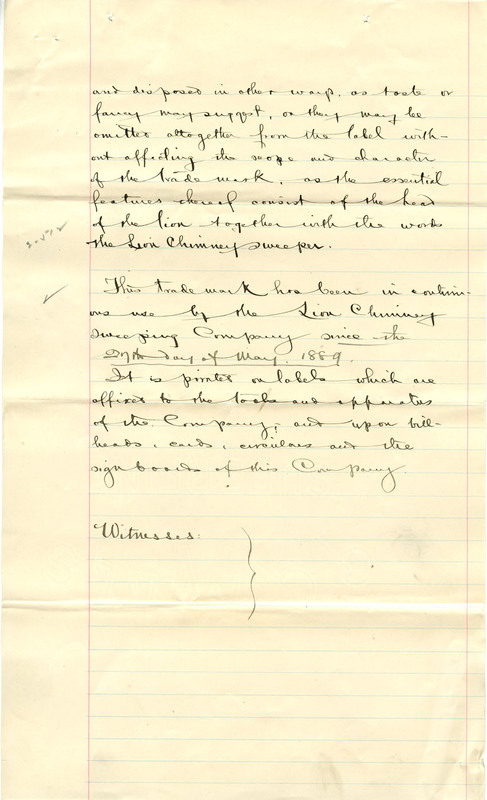 and disposed in other ways, as taste or
fancy may suggest, or they may be
omitted altogether from the label with-
out affecting the scope and character
of the trade mark, as the essential
features thereof consist of the head
of the lion together with the words
the Lion Chimney sweeper.
This trade mark has been in continu-
ous use by the Lion Chimney
Sweeping Company since the
27th day of May, 1889.
It is printed on labels which are
affixed to the tools and apparatus
of the Company, and upon bill-
heads, cards, circulars and the
sign boards of this Company.
Witnesses: